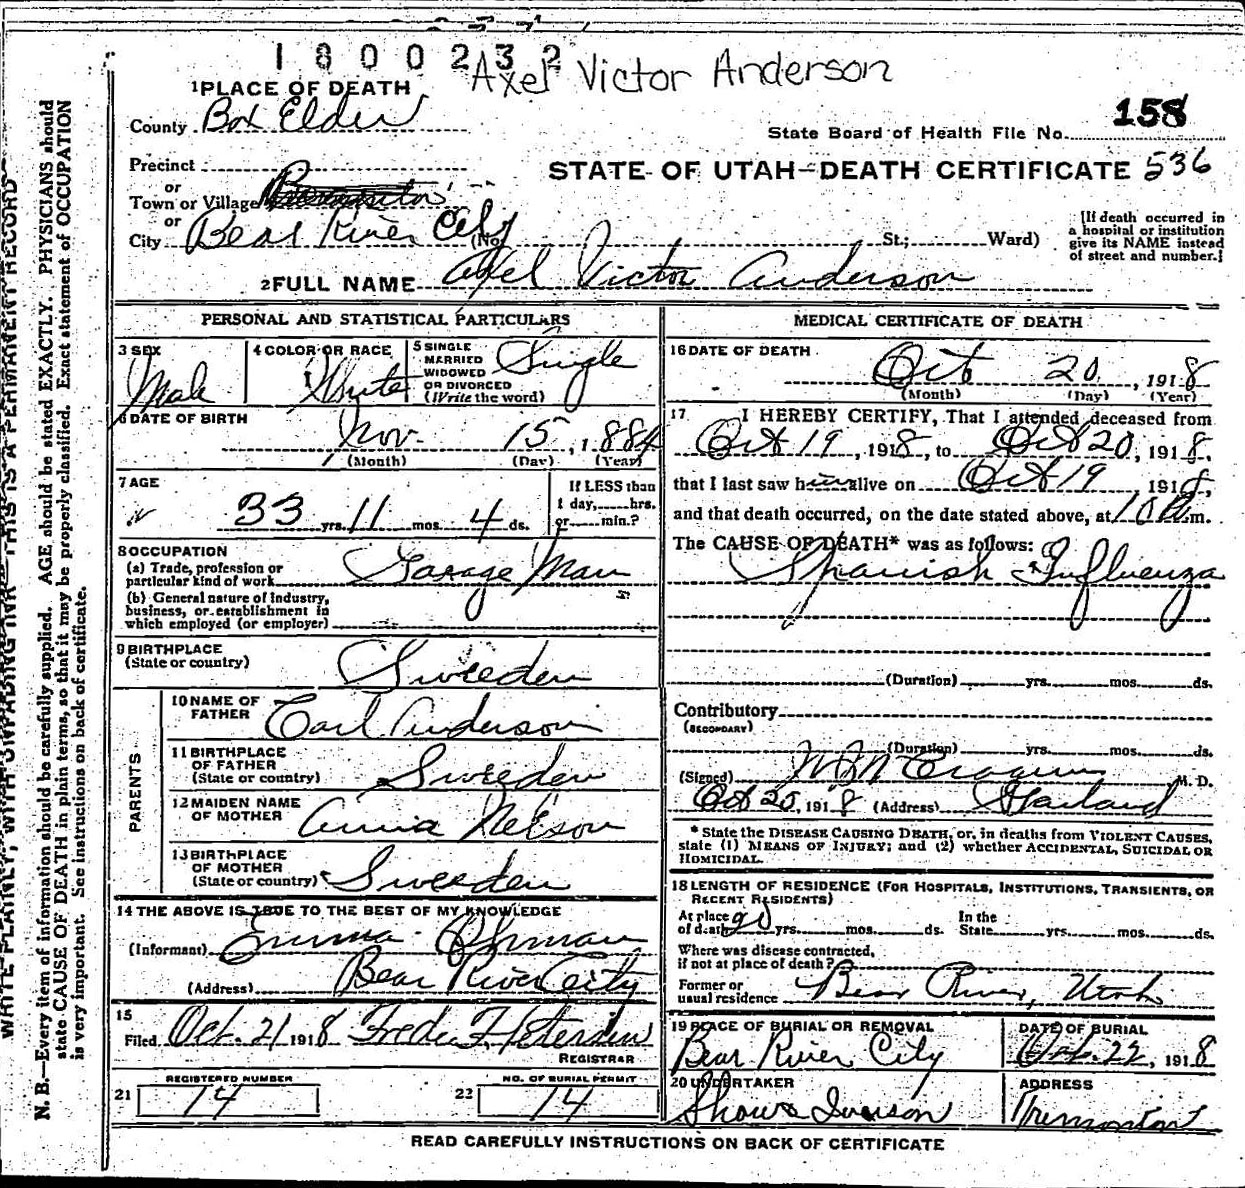 1800232
Axel Victor Anderson
1 PLACE OF DEATH
County Box Elder
158
State Board of Health File No.
Precinct
or
Town or Village
STATE OF UTAH—DEATH CERTIFICATE 536
or
City Bear River City (No. St.; Ward)
[If death occurred in
a hospital or institution
give its NAME instead
of street and number.]
2 FULL NAME Axel Victor Anderson
PERSONAL AND STATISTICAL PARTICULARS
3 SEX
Male
4 COLOR OR RACE
White
5 SINGLE
MARRIED
WIDOWED
OR DIVORCED
(Write the word)
Single
6 DATE OF BIRTH
Nov. 15, 1884
(Month) (Day) (Year)
7 AGE
33 yrs. 11 mos. 4 ds.
If LESS than
1 day, hrs.
or min.?
8 OCCUPATION
(a) Trade, profession or
particular kind of work Garage Man
(b) General nature of Industry,
business, or establishment in
which employed (or employer)
9 BIRTHPLACE
(State or country) Sweeden
PARENTS
10 NAME OF
FATHER Carl Anderson
11 BIRTHPLACE
OF FATHER
(State or country) Sweeden
12 MAIDEN NAME
OF MOTHER Anna Nelson
13 BIRTHPLACE
OF MOTHER
(State or country) Sweeden
14 THE ABOVE IS TRUE TO THE BEST OF MY KNOWLEDGE
(Informant) Emma Ohman
(Address) Bear River City
15
Filed Oct. 21 1918
REGISTRAR
REGISTERED NUMBER
21 14
NO. OF BURIAL PERMIT
22 14
MEDICAL CERTIFICATE OF DEATH
16 DATE OF DEATH
Oct 20, 1918
(Month) (Day) (Year)
17 I HEREBY CERTIFY, That I attended deceased from
Oct 19, 1918, to Oct 20, 1918,
that I last saw him alive on Oct 19 1918,
and that death occurred, on the date stated above, at 10 a.m.
The CAUSE OF DEATH* was as follows:
Spanish Influenza
(Duration) yrs. mos. ds.
Contributory
(SECONDARY)
(Duration) yrs. mos. ds.
(Signed) M. D.
Oct 20, 1918 (Address) Garland
* State the DISEASE CAUSING DEATH, or, in deaths from VIOLENT CAUSES,
state (1) MEANS OF INJURY; and (2) whether ACCIDENTAL, SUICIDAL OR
HOMICIDAL.
18 LENGTH OF RESIDENCE (FOR HOSPITALS, INSTITUTIONS, TRANSIENTS, OR
RECENT RESIDENTS)
At place
of death yrs. mos. ds.
In the
State yrs. mos. ds.
Where was disease contracted,
if not at place of death?
Former or
usual residence Bear River, Utah
19 PLACE OF BURIAL OR REMOVAL
Bear River City
DATE OF BURIAL
Oct. 22, 1918
20 UNDERTAKER
ADDRESS
Tremonton
READ CAREFULLY INSTRUCTIONS ON BACK OF CERTIFICATE
WRITE PLAINLY, WITH UNFADING INK—THIS IS A PERMANENT RECORD
N. B.—Every item of information should be carefully supplied. AGE should be stated EXACTLY. PHYSICIANS should
state CAUSE OF DEATH in plain terms, so that it may be properly classified. Exact statement of OCCUPATION
is very important. See instructions on back of certificate.